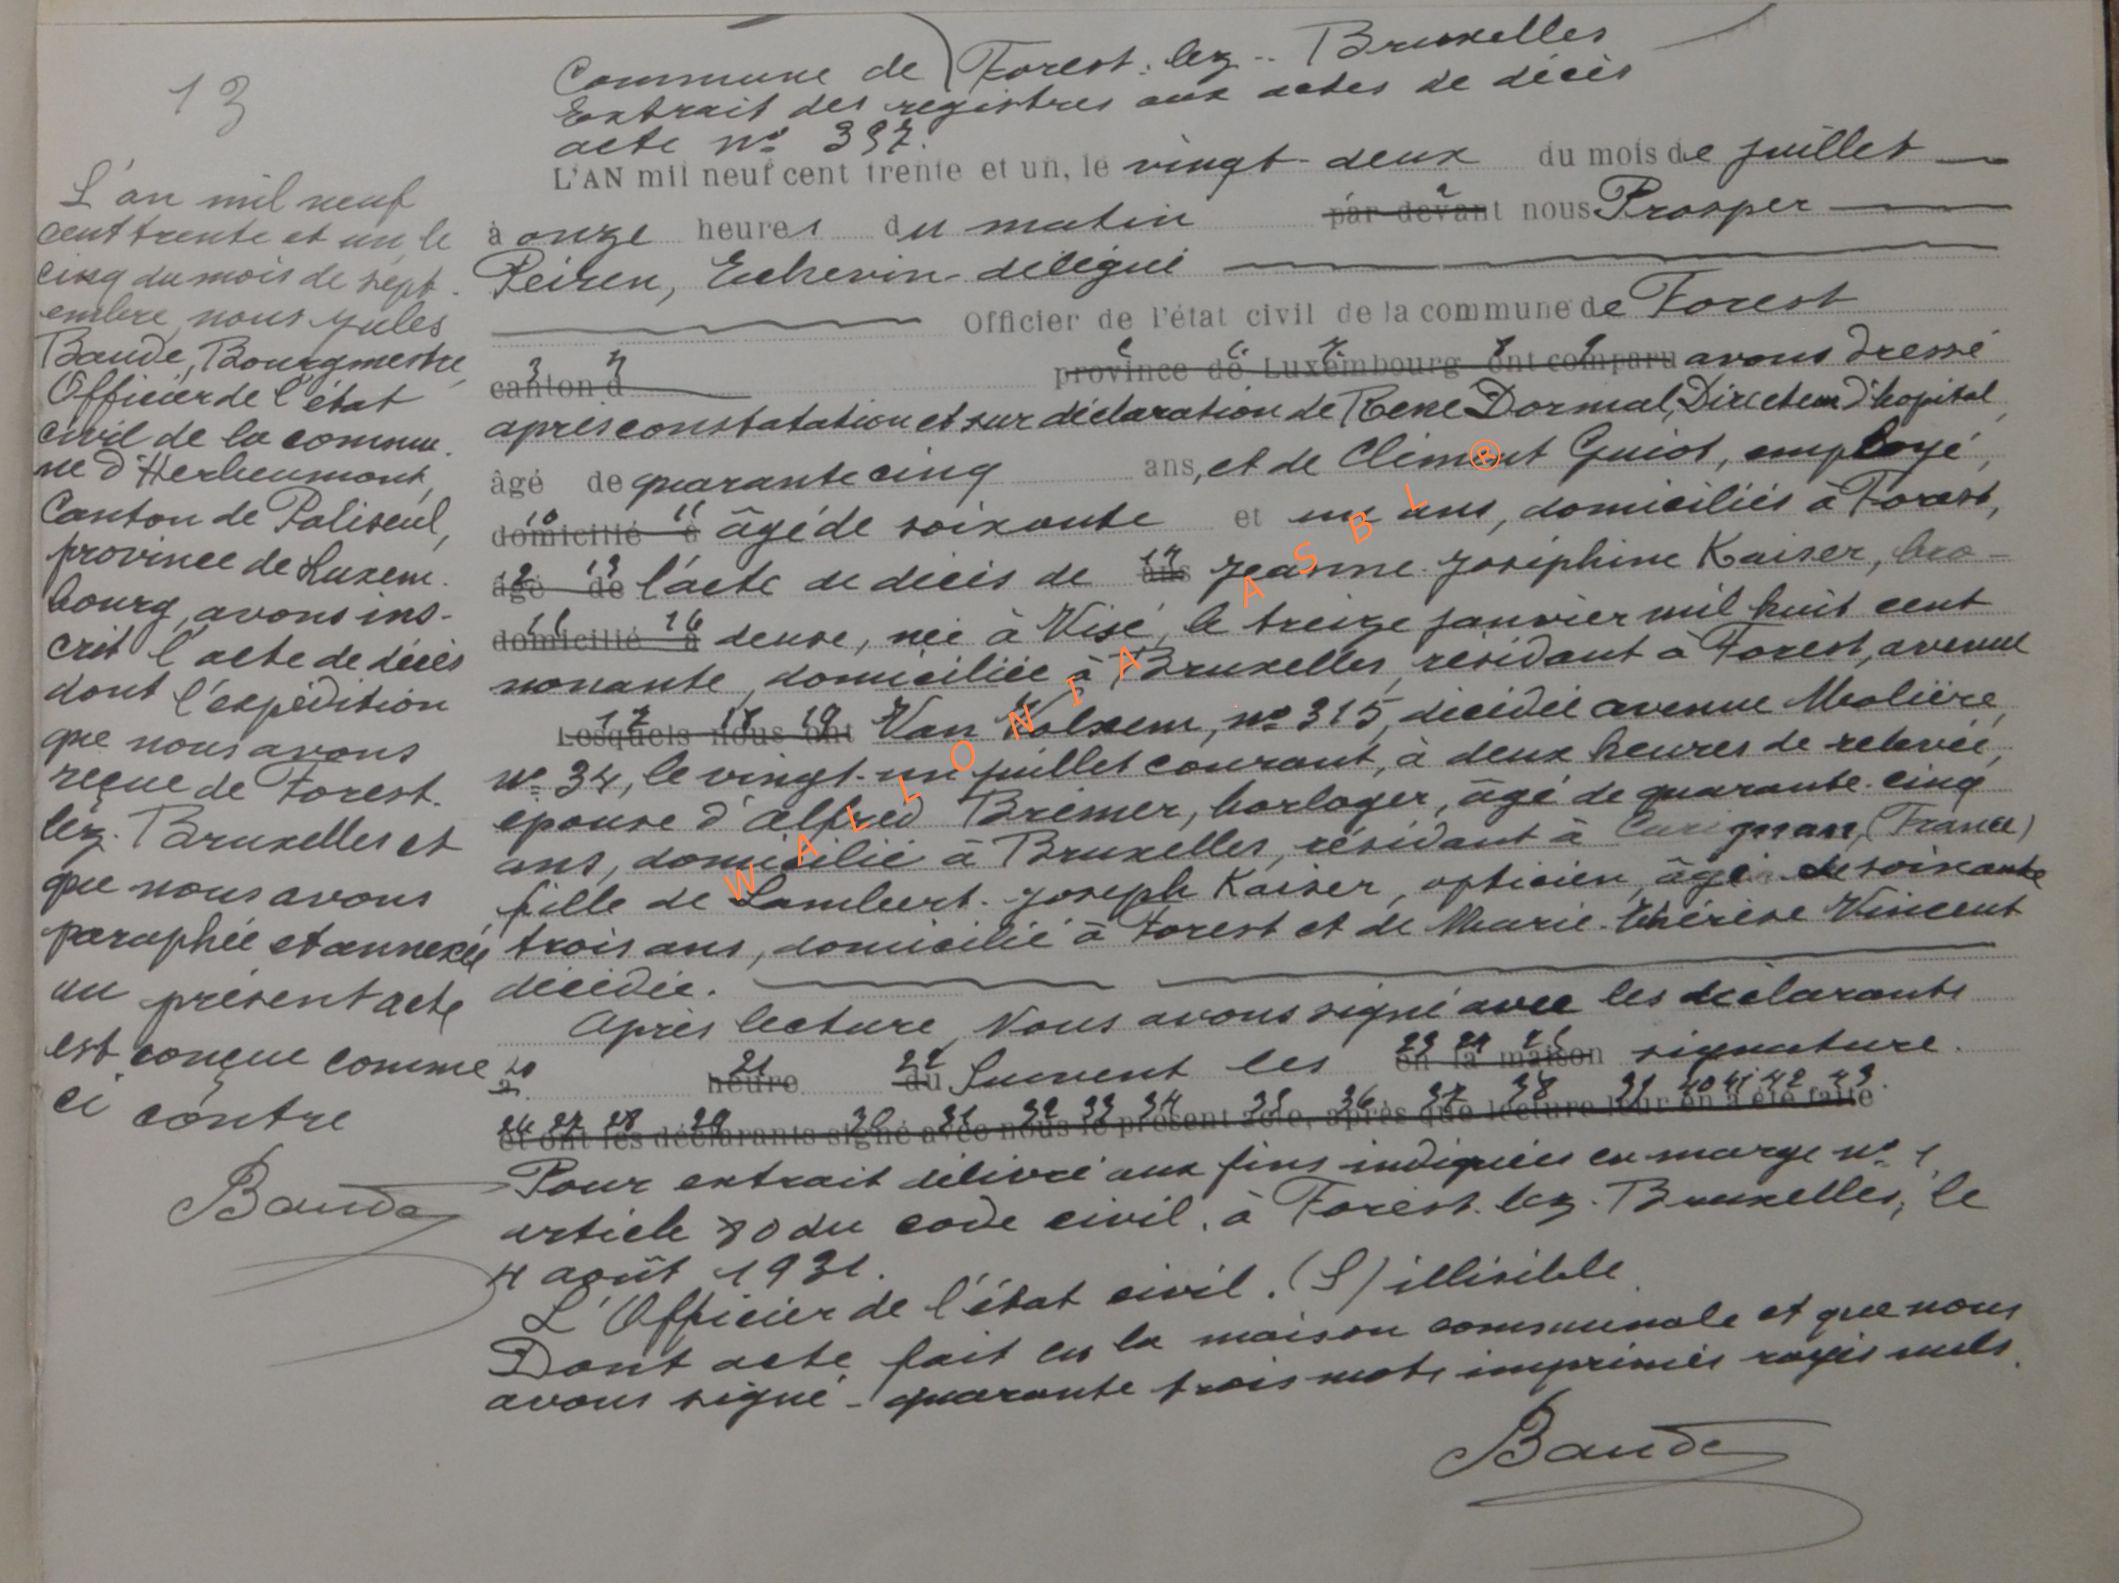 13
L'an mil neuf
cent trente et un, le
cinq du mois de sept.
embre, nous Jules
Baude, Bourgmestre,
Officier de l'état
civil de la commu.
ne d'Herbeumont,
Canton de Paliseul,
province de Luxem.
bourg, avons ins-
crit l'acte de décès
dont l'expédition
que nous avons
reçue de Forest.
lez. Bruxelles et
que nous avons
paraphée et annexée
au présent acte
est conçue comme
ci contre
Baude
Commune de Forest. lez.. Bruxelles
Extrait des registres aux actes de décès
acte no 397.
L'AN mil neuf cent trente et un, le vingt-deux du mois de juillet
à onze heures du matin par devant nous Prosper
Peiren, Echevin-délégué
Officier de l'état civil de la commune de Forest
3 4
canton d province de Luxembourg ont comparu avons dressé
après constatation et sur déclaration de Rene Dormal, Directeur d'hopital,
âgé de quarante cinq ans, et de Clément Guiot, employé,
10 11
domicilié à âgé de soixante et un ans, domiciliés à Forest,
12 13 14
âgé de l'acte de décès de ans Jeanne Joséphine Kaiser, bro-
15 16
domicilié à deuse, née à Visé, le treize janvier mil huit cent
nonante, domiciliée à Bruxelles, résidant à Forest, avenue
17 18 19
Lesquels nous ont Van Volxem, no 315, décédée avenue Molière,
no 34, le vingt-un juillet courant, à deux heures de relevée,
épouse d'Alfred Brémer, horloger, âgé de quarante-cinq
ans, domicilié à Bruxelles, résidant à Carignan, (France)
fille de Lambert-Joseph Kaiser, opticien, âgé de soixante
trois ans, domicilié à Forest et de Marie-Thérèse Vincent
décédée.
Après lecture, Nous avons signé avec les déclarants
20 21 22 23 24 25
heure du Suivent les en la maison signature.
26 27 28 29 30 31 32 33 34 35 36 37 38 39 40 41 42 43
et ont les déclarants signé avec nous le présent acte, après que lecture leur en a été faite
Pour extrait délivré aux fins indiquées en marge no 1,
article 80 du code civil, à Forest. lez. Bruxelles, le
4 août 1931.
L'Officier de l'état civil. (S) illisible
Dont acte fait en la maison communale et que nous
avons signé - quarante trois mots imprimés rayés nuls.
Baude
WALLONIA ASBL ®